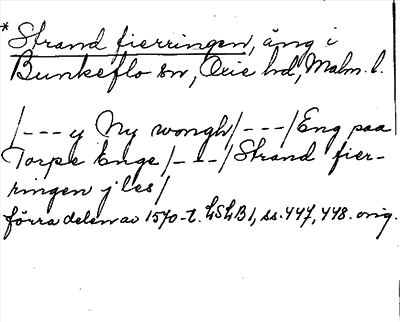 *Strand fierringen, äng i
Bunkeflo sn, Oxie hd, Malm. l.
/---y Ny wongh/---/Eng paa
Torpe Enge/---/Strand fier-
ringen j les/
förra delen av 1570-t. LSLB1, ss. 447, 448. orig.